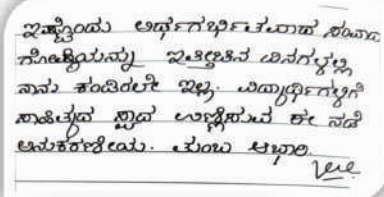 ಇಷ್ಟೊಂದು ಅರ್ಥಗರ್ಭಿತವಾದ ಸಂವಾದ
ಗೋಷ್ಠಿಯನ್ನು ಇತ್ತೀಚಿನ ದಿನಗಳಲ್ಲಿ
ನಾನು ಕಂಡಿರಲೇ ಇಲ್ಲ. ವಿದ್ಯಾರ್ಥಿಗಳಿಗೆ
ಸಾಹಿತ್ಯದ ಸ್ವಾದ ಉಣ್ಣಿಸುವ ಈ ನಡೆ
ಅನುಕರಣೀಯ. ತುಂಬ ಆಭಾರಿ.